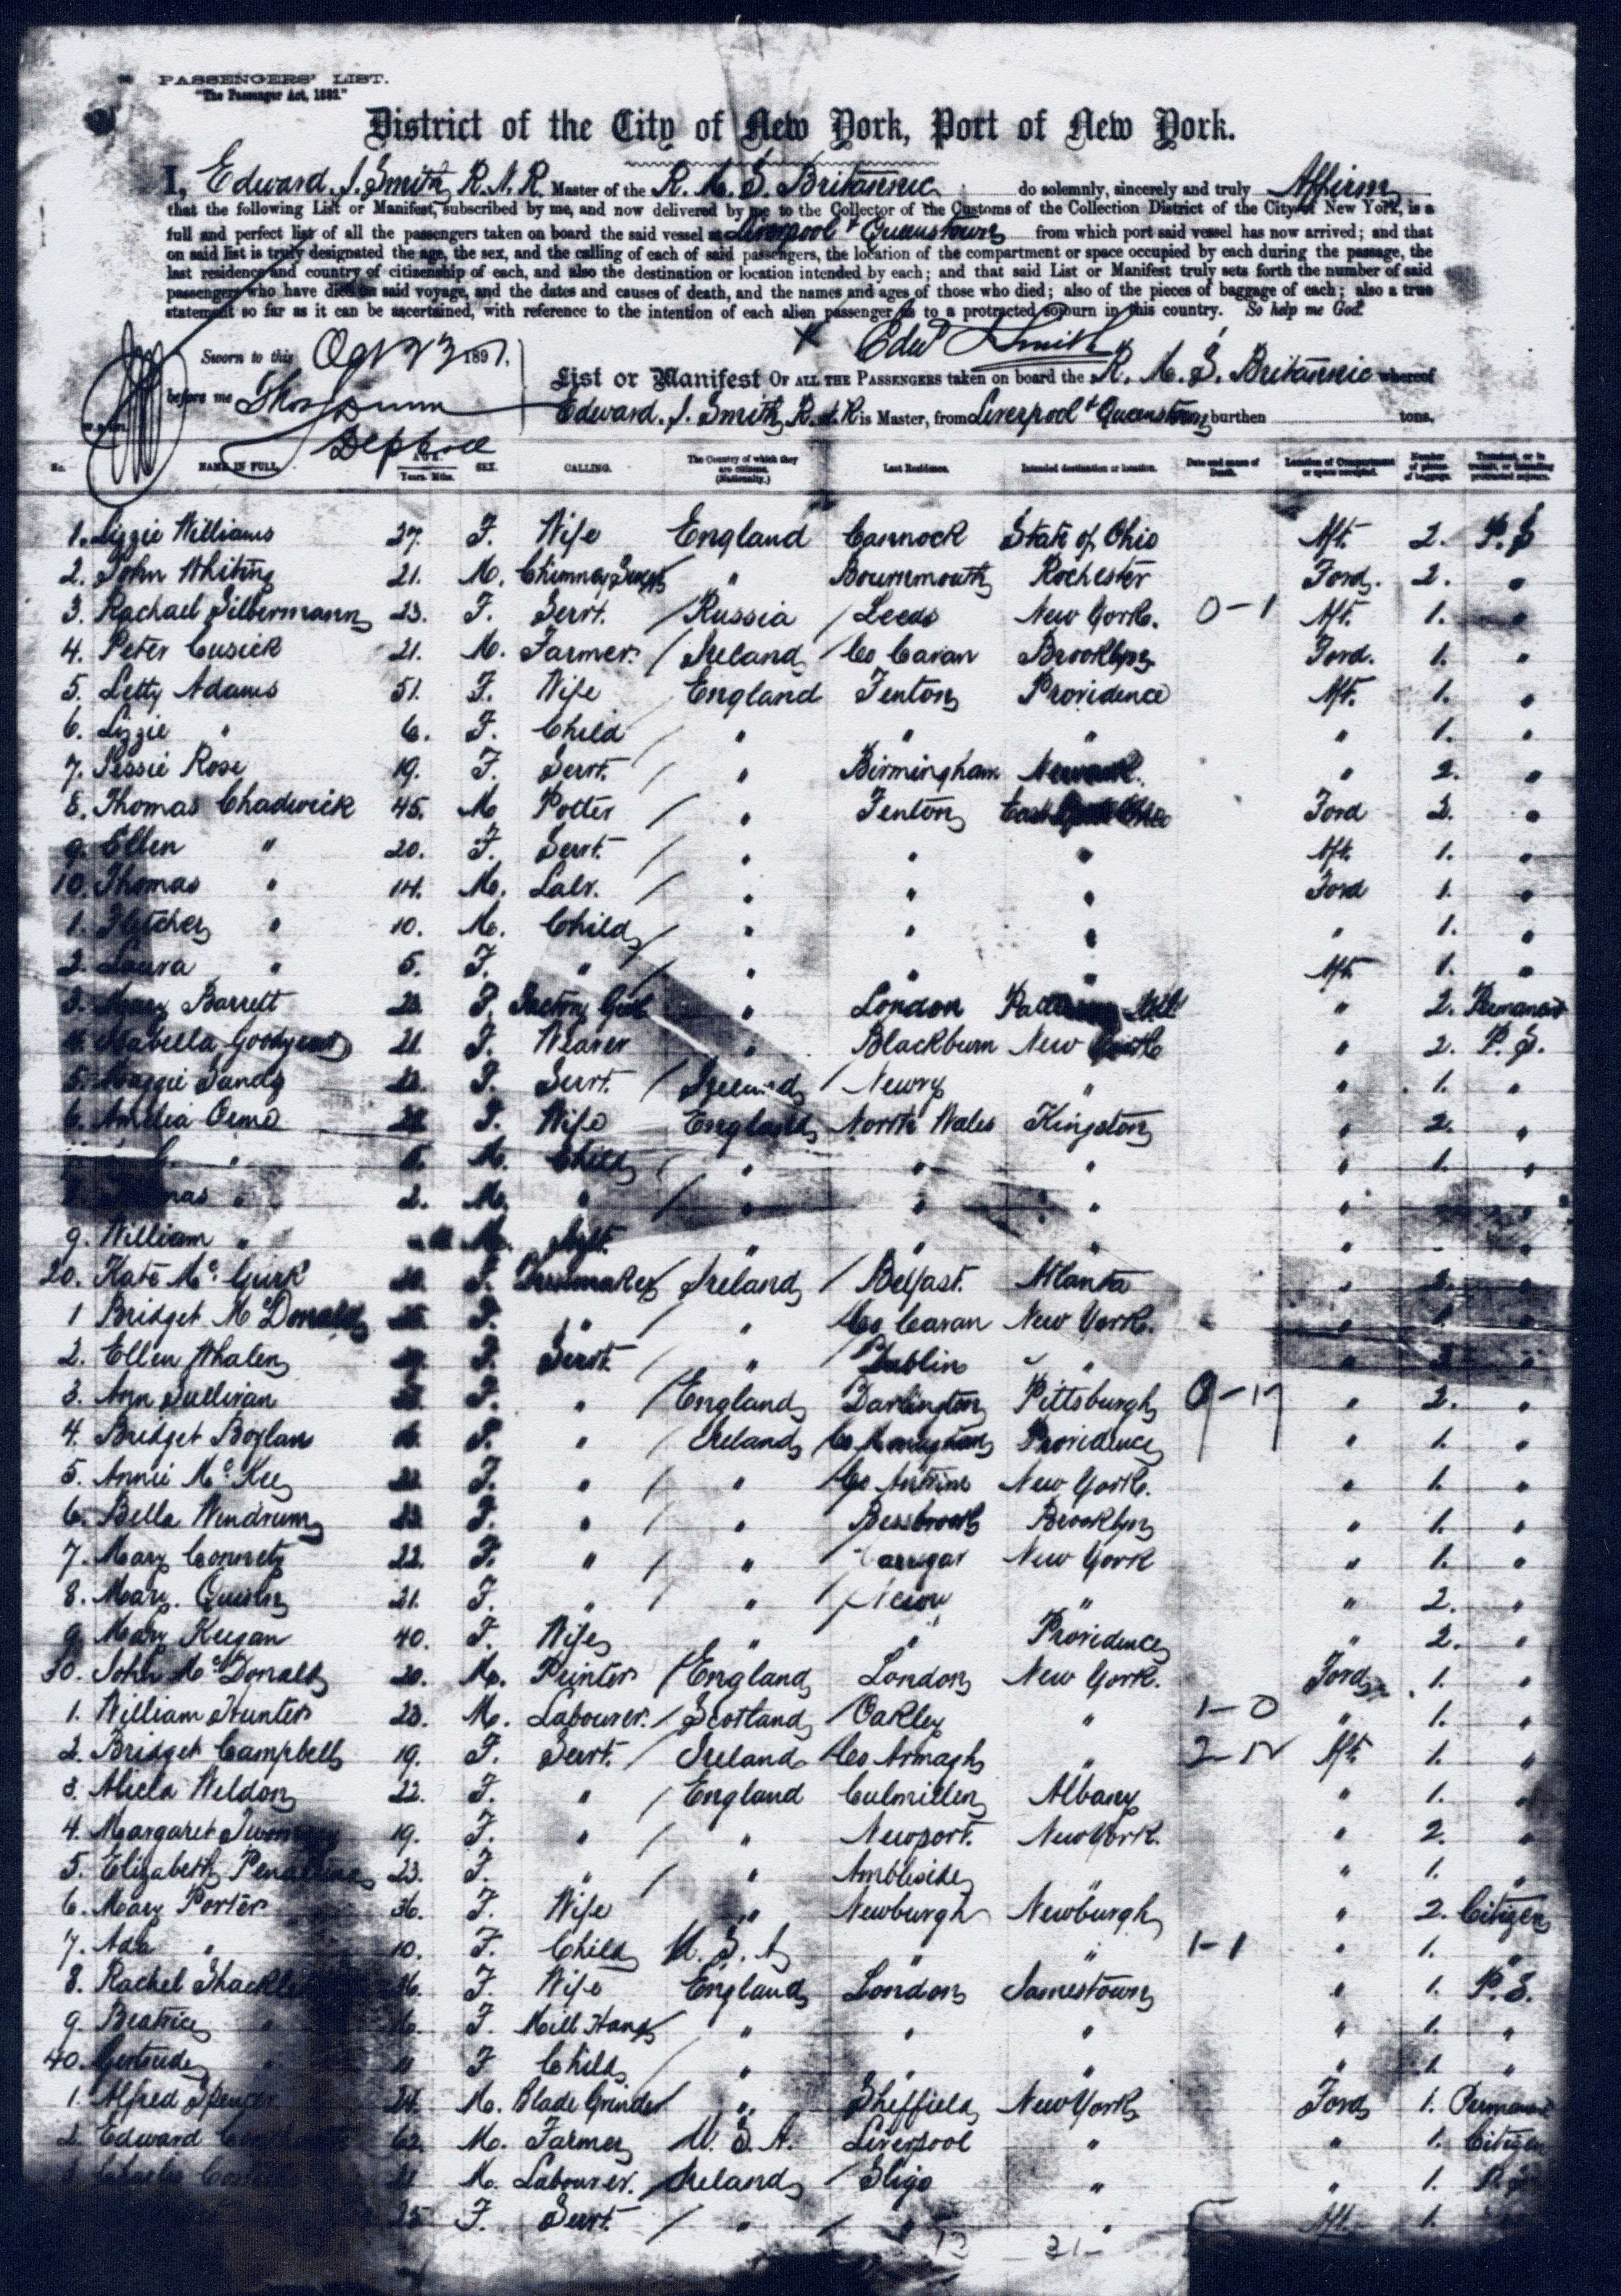 PASSENGERS' LIST.
"The Passenger Act, 1882."
District of the City of New York, Port of New York.
I, Edward J. Smith, R.N.R. Master of the R. M. S. Britannic do solemnly, sincerely and truly Affirm
that the following List or Manifest, subscribed by me, and now delivered by me to the Collector of the Customs of the Collection District of the City of New York, is a
full and perfect list of all the passengers taken on board the said vessel at Liverpool & Queenstown from which port said vessel has now arrived; and that
on said list is truly designated the age, the sex, and the calling of each of said passengers, the location of the compartment or space occupied by each during the passage, the
last residence and country of citizenship of each, and also the destination or location intended by each; and that said List or Manifest truly sets forth the number of said
passengers who have died on said voyage, and the dates and causes of death, and the names and ages of those who died; also of the pieces of baggage of each; also a true
statement so far as it can be ascertained, with reference to the intention of each alien passenger as to a protracted sojourn in this country. So help me God.
Edwd J Smith
Sworn to this Oct 23 1897.
List or Manifest OF ALL THE PASSENGERS taken on board the R. M. S. Britannic whereof
before me
Edward. J. Smith, R.N.R is Master, from Liverpool & Queenstown burthen tons.
No. NAME IN FULL. AGE. Years. Mths. SEX. CALLING. The Country of which they are citizens. (Nationality.) Last Residence. Intended destination or location. Date and cause of Death. Location of Compartment or space occupied. Number of pieces of baggage. Transient, or in transit, or intending protracted sojourn.
1. Lizzie Williams 27. F. Wife England Cannock State of Ohio Aft. 2. P.S
2. John Whiting 21. M. Chimney Sweep " Bournemouth Rochester Ford. 2. "
3. Rachael Silbermann 23. F. Servt. / Russia / Leeds New York. 0-1 Aft. 1. "
4. Peter Cusick 21. M. Farmer. / Ireland / Co Cavan Brooklyn Ford. 1. "
5. Letty Adams 51. F. Wife England Fenton Providence Aft. 1. "
6. Lizzie " 6. F. Child / " " " " 1. "
7. Jessie Rose 19. F. Servt. / " Birmingham Newark. " 2. "
8. Thomas Chadwick 45. M Potter / " Fenton East Ford 2. "
9. Ellen " 20. F. Servt. / " " " Aft. 1. "
10. Thomas " 14. M. Labr. / " " " Ford 1. "
1. Fletcher " 10. M. Child / " " " " 1. "
2. Laura " 5. F. " / " " " Aft 1. "
3. Mary Barrett F. Factory Girl " London " 2. Permanent
4. Isabella Goodyear 21. F. Weaver " Blackburn New " 2. P. S.
5. Maggie Sands F. Servt. / Ireland / Newry " " 1. "
6. Amelia Orme F. Wife England North Wales Kingston " 2. "
" M. Child / " " " " 1. "
8. Thomas " 2. M. " / " " " " "
9. William " M. Inft. " " " " "
20. Kate McGurk F. Dressmaker / Ireland / Belfast. Atlanta " 2. "
1 Bridget McDonald F. " / " Co Cavan New York. " 1. "
2. Ellen Whalen F. Servt. / " / Dublin " " "
3. Ann Sullivan F. " / England Darlington Pittsburgh " 2. "
4. Bridget Boylan F. " / Ireland / Co Monaghan Providence " 1. "
5. Annie McKee 22. F. " / " / Co Antrim New York. " 1. "
6. Bella Wendrum 23. F. " / " Bessbrook Brooklyn " 1. "
7. Mary 22. F. " / " New York " 1. "
8. Mary. Quinn 21. F. " / " / " " 2. "
9. Mary Keegan 40. F. Wife " " Providence " 2. "
30. John McDonald 20. M. Printer / England London New York. Ford 1. "
1. William Hunter 23. M. Labourer. / Scotland / Oakley " 1-0 " 1. "
2. Bridget Campbell 19. F. Servt. / Ireland / Co Armagh " Aft. 1. "
3. Alicia Weldon 22. F. " / England Albany " 1. "
4. Margaret 19. F. " / " Newport. New York. " 2. "
5. Elizabeth 23. F. " / " Ambleside " " 1. "
6. Mary Porter 36. F. Wife " Newburgh Newburgh " 2. Citizen
7. Ada " 10. F. Child U. S. A " " 1-1 " 1. "
8. Rachel F. Wife England London Jamestown " 1. P. S.
9. Beatrice " F. Mill Hand " " " " 1. "
40. Gertrude " 11 F Child " " " " 1. "
1. Alfred Spencer 24. M. Blade Grinder / " Sheffield New York Ford 1. Permanent
2. Edward 62. M. Farmer U. S. A. Liverpool " " 1. Citizen
3. Charles 21 M. Labourer. / Ireland / Sligo " " 1. P.S
25 F. Servt. / " / " " Aft. 1.